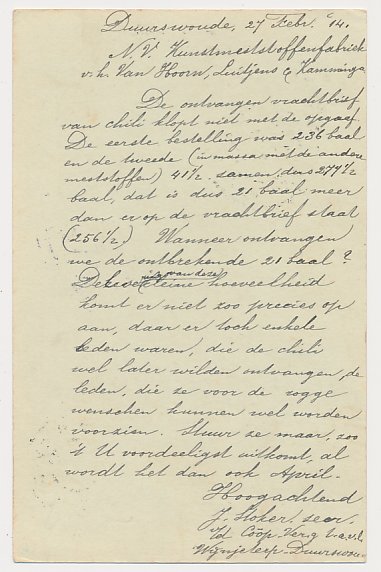 Duurswoude, 27 Febr. '14.
N.V. Kunstmeststoffenfabriek
v.h. Van Hoorn, Luitjens & Kamminga
De ontvangen vrachtbrief
van chili klopt niet met de opgaaf.
De eerste bestelling was 236 baal
en de tweede (in massa met de andere
meststoffen) 41½ samen, dus 277½
baal, dat is dus 21 baal meer
dan er op de vrachtbrief staat
(256½). Wanneer ontvangen
we de ontbrekende 21 baal?
van deze
kleine hoeveelheid
komt er niet zoo precies op
aan, daar er toch enkele
leden waren, die de chili
wel later wilden ontvangen, de
leden, die ze voor de rogge
wenschen kunnen wel worden
voorzien. Stuur ze maar, zoo
't U voordeeligst uitkomt, al
wordt het dan ook April.
Hoogachtend
J. Stoker, secr.
Coöp. Ver.g t.a.v.l.
Wijnjeterp-Duurswou